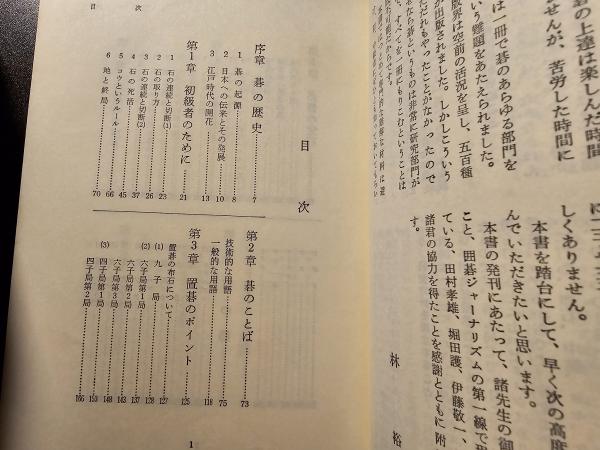 碁の上達は楽しんだ時間
せんが、苦労した時間に
は一冊で碁のあらゆる部門を
いう難題をあたえられました。
版界は空前の活況を呈し、五百種
が出版されました。しかしこういう
だれもやったことがなかったので
来なら碁というものは非常に研究部門が
て、すべてを一冊にもりこむということは
しくありません。
本書を踏台にして、早く次の高度
んでいただきたいと思います。
本書の発刊にあたって、諸先生の御
こと、囲碁ジャーナリズムの第一線で
ている、田村孝雄、堀田護、伊藤敬一、
諸君の協力を得たことを感謝とともに附
す。
林 裕
目 次
目 次
序章 碁の歴史 7
1 碁の起源 8
2 日本への伝来とその発展 10
3 江戸時代の開花 13
第1章 初級者のために 21
1 石の連続と切断(1) 23
2 石の取り方 26
3 石の連続と切断(2) 37
4 石の死活 45
5 コウというルール 66
6 地と終局 70
第2章 碁のことば 73
技術的な用語 75
一般的な用語 118
第3章 置碁のポイント 125
置碁の布石について 127
(1) 九子局 128
(2) 六子局第1局 137
六子局第2局 143
六子局第3局 148
(3) 四子局第1局 153
四子局第2局 166
1